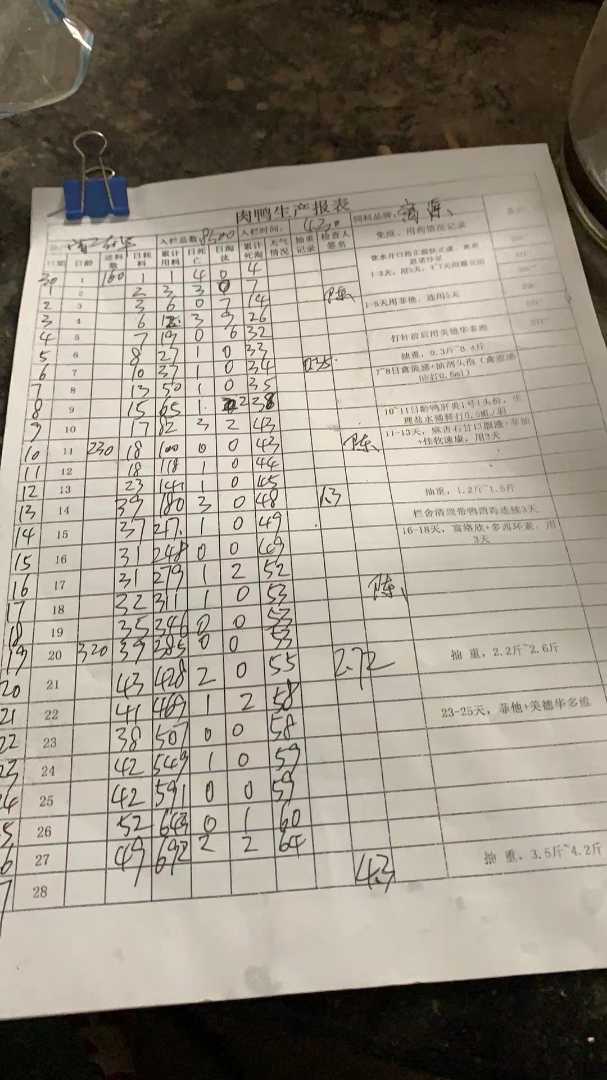 肉鸭生产报表
入栏总数 8500 入栏时间: 4.30 饲料品牌:
免疫、用药情况记录
日期 日龄 进料包 日耗料 累计用料 日死亡 日淘汰 累计死淘 天气情况 抽重记录 检查人签名
30 1 160 1 1 4 0 4
1 2 2 3 3 0 7 陈
2 3 3 6 0 7 14 1-5周用菲他，连用5天
3 4 6 12 3 9 26
4 5 7 19 0 6 32 打针前后用美德华多维
5 6 8 27 1 0 33 抽重，0.3斤~0.4斤
6 7 10 37 1 0 34 0.35
7 8 13 50 1 0 35
8 9 15 65 1 2 38
9 10 17 82 3 2 43
10 11 230 18 100 0 0 43 陈
11 12 18 118 1 0 44
12 13 23 141 1 0 45
13 14 39 180 3 0 48 1.3 抽重，1.2斤~1.5斤
14 15 37 217 1 0 49 栏舍清粪带鸭消毒连续3天
15 16 31 248 0 0 49 16-18天，富洛欣+多西环素，用3天
16 17 31 279 1 2 52
17 18 32 311 1 0 53 陈
18 19 35 346 0 0 53
19 20 320 39 385 0 0 53
20 21 43 428 2 0 55 2.72 抽重，2.2斤~2.6斤
21 22 41 469 1 2 58
22 23 38 507 0 0 58 23-25天，菲他+美德华多维
23 24 42 549 1 0 59
24 25 42 591 0 0 59
5 26 52 643 0 1 60
6 27 49 692 2 2 64
7 28 4.3 抽重，3.5斤~4.2斤